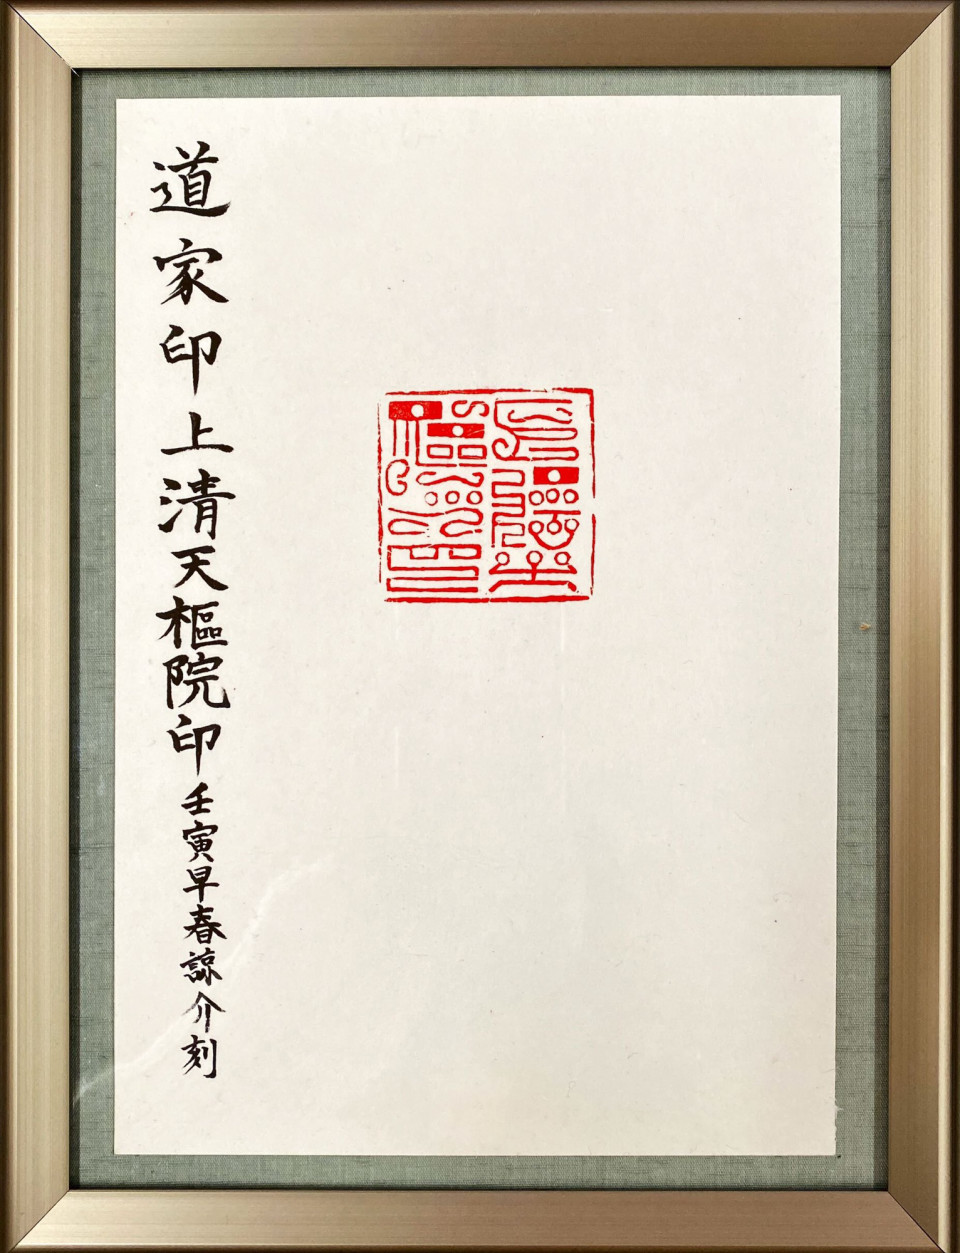 道家印上清天樞院印壬寅早春諒介刻